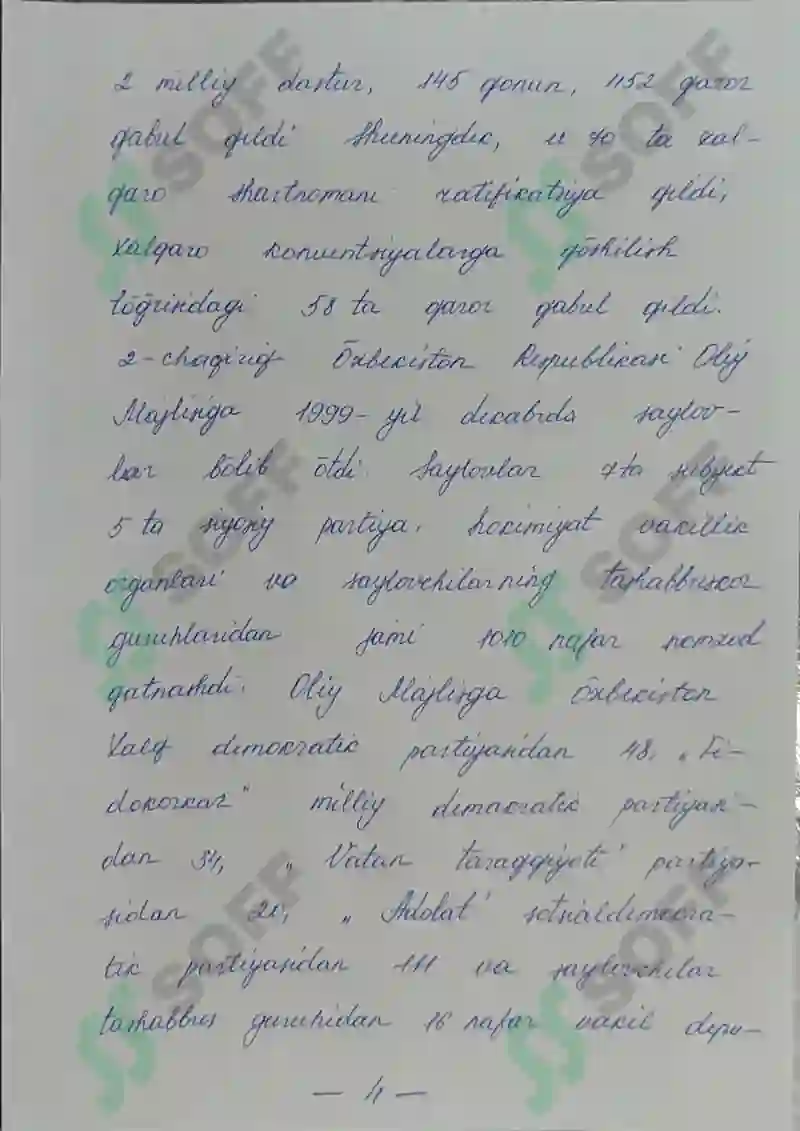 2 milliy dastur, 145 qonun, 1152 qaror
qabul qildi Shuningdek, u 70 ta xal-
qaro shartnomani ratifikatsiya qildi,
xalqaro konventsiyalarga qōshilish
tōğrisidagi 58 ta qaror qabul qildi.
2-chaqiriq Ōzbekiston Respublikasi Oliy
Majlisiga 1999-yil dekabrda saylov-
lar bōlib ōtdi. Saylovlar 7ta subyekt
5 ta siyosiy partiya, hokimiyat vakillik
organlari va saylovchilarning tashabbuskor
guruhlaridan jami 1010 nafar nomzod
qatnashdi. Oliy Majlisga Ōzbekiston
Xalq demokratik partiyasidan 48, „Fi-
dokorlar" milliy demokratik partiyasi-
dan 34, „Vatan taraqqiyoti" partiya-
sidan 20, „Adolat" sotsialdemokra-
tik partiyasidan 11 va saylovchilar
tashabbus guruhidan 16 nafar vakil depu-
— 4 —
SOFF
SOFF
SOFF
SOFF
SOFF
SOFF